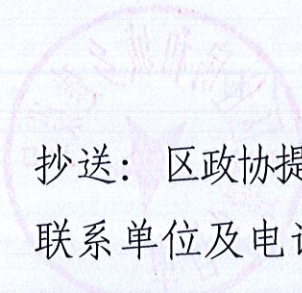 抄送： 区政协提
联系单位及电